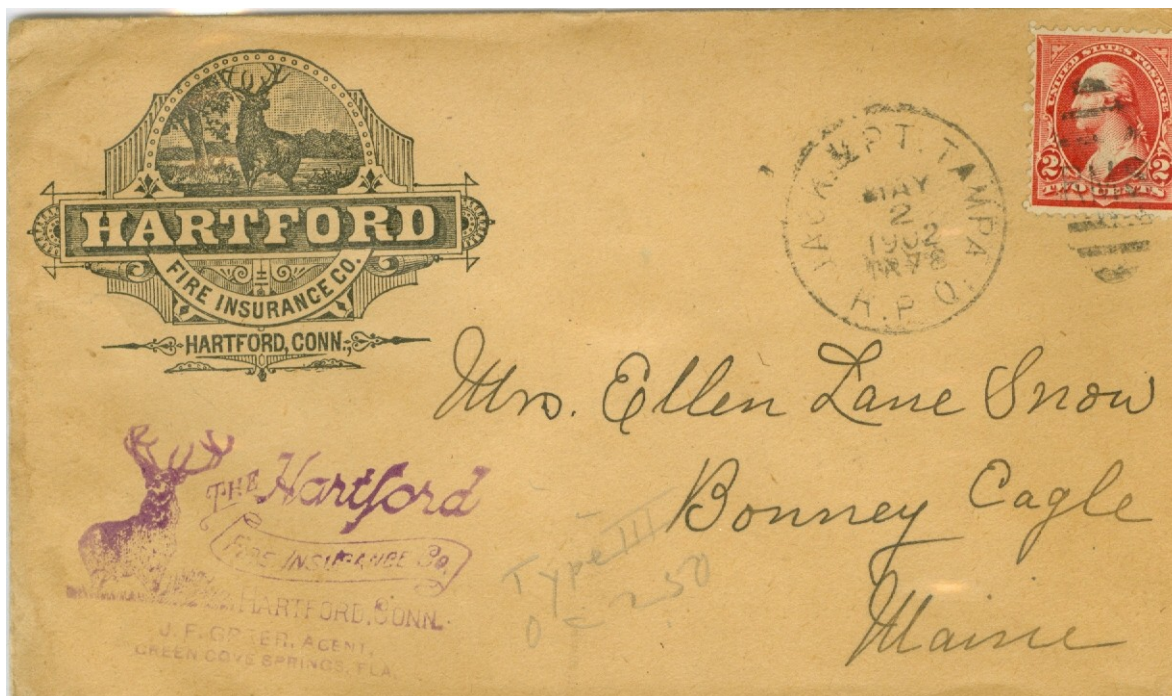 HARTFORD
FIRE INSURANCE CO.
HARTFORD, CONN.
JACK. & PT. TAMPA
MAY
2
1902
R.P.O.
UNITED STATES POSTAGE
2 2
TWO CENTS
Mrs. Ellen Lane Snow
Bonney Eagle
Maine
THE Hartford
FIRE INSURANCE Co.
HARTFORD, CONN.
J. F. GEIGER, AGENT,
GREEN COVE SPRINGS, FLA.
Type III
250